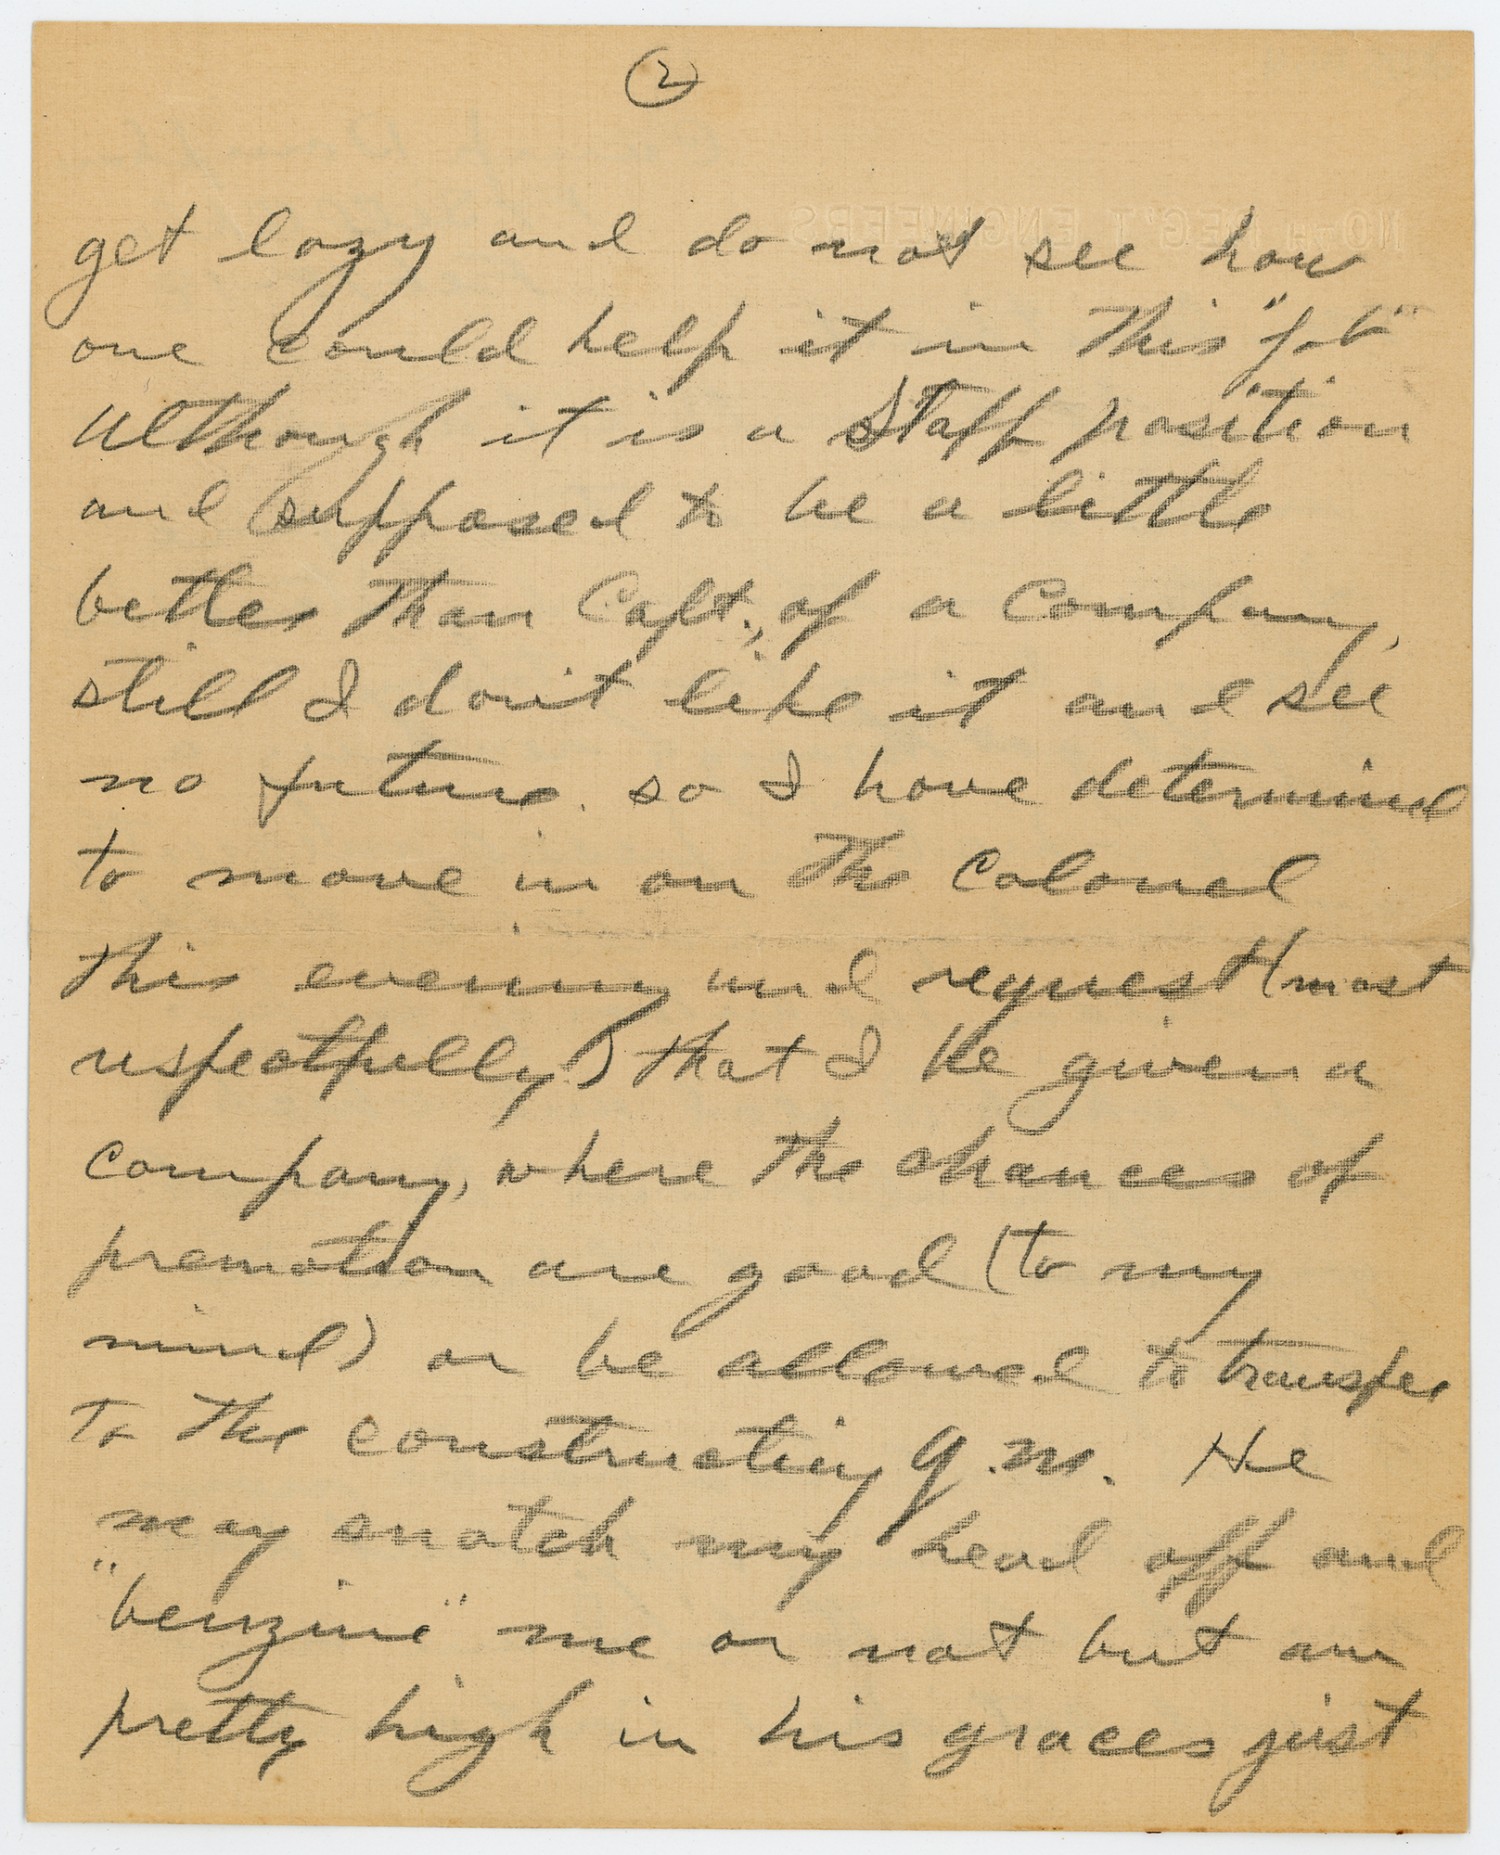 2
get lazy and do not see how
one could help it in this "job"
Although it is a Staff position
and supposed to be a little
better than Capt., of a Company,
still I don't like it and see
no future. so I have determined
to move in on the Colonel
this evening and request (most
respectfully) that I be given a
company, where the chances of
promotion are good (to my
mind) or be allowed to transfer
to the constructing Q.M. He
may snatch my head off and
"benzine" me or not but am
pretty high in his graces just